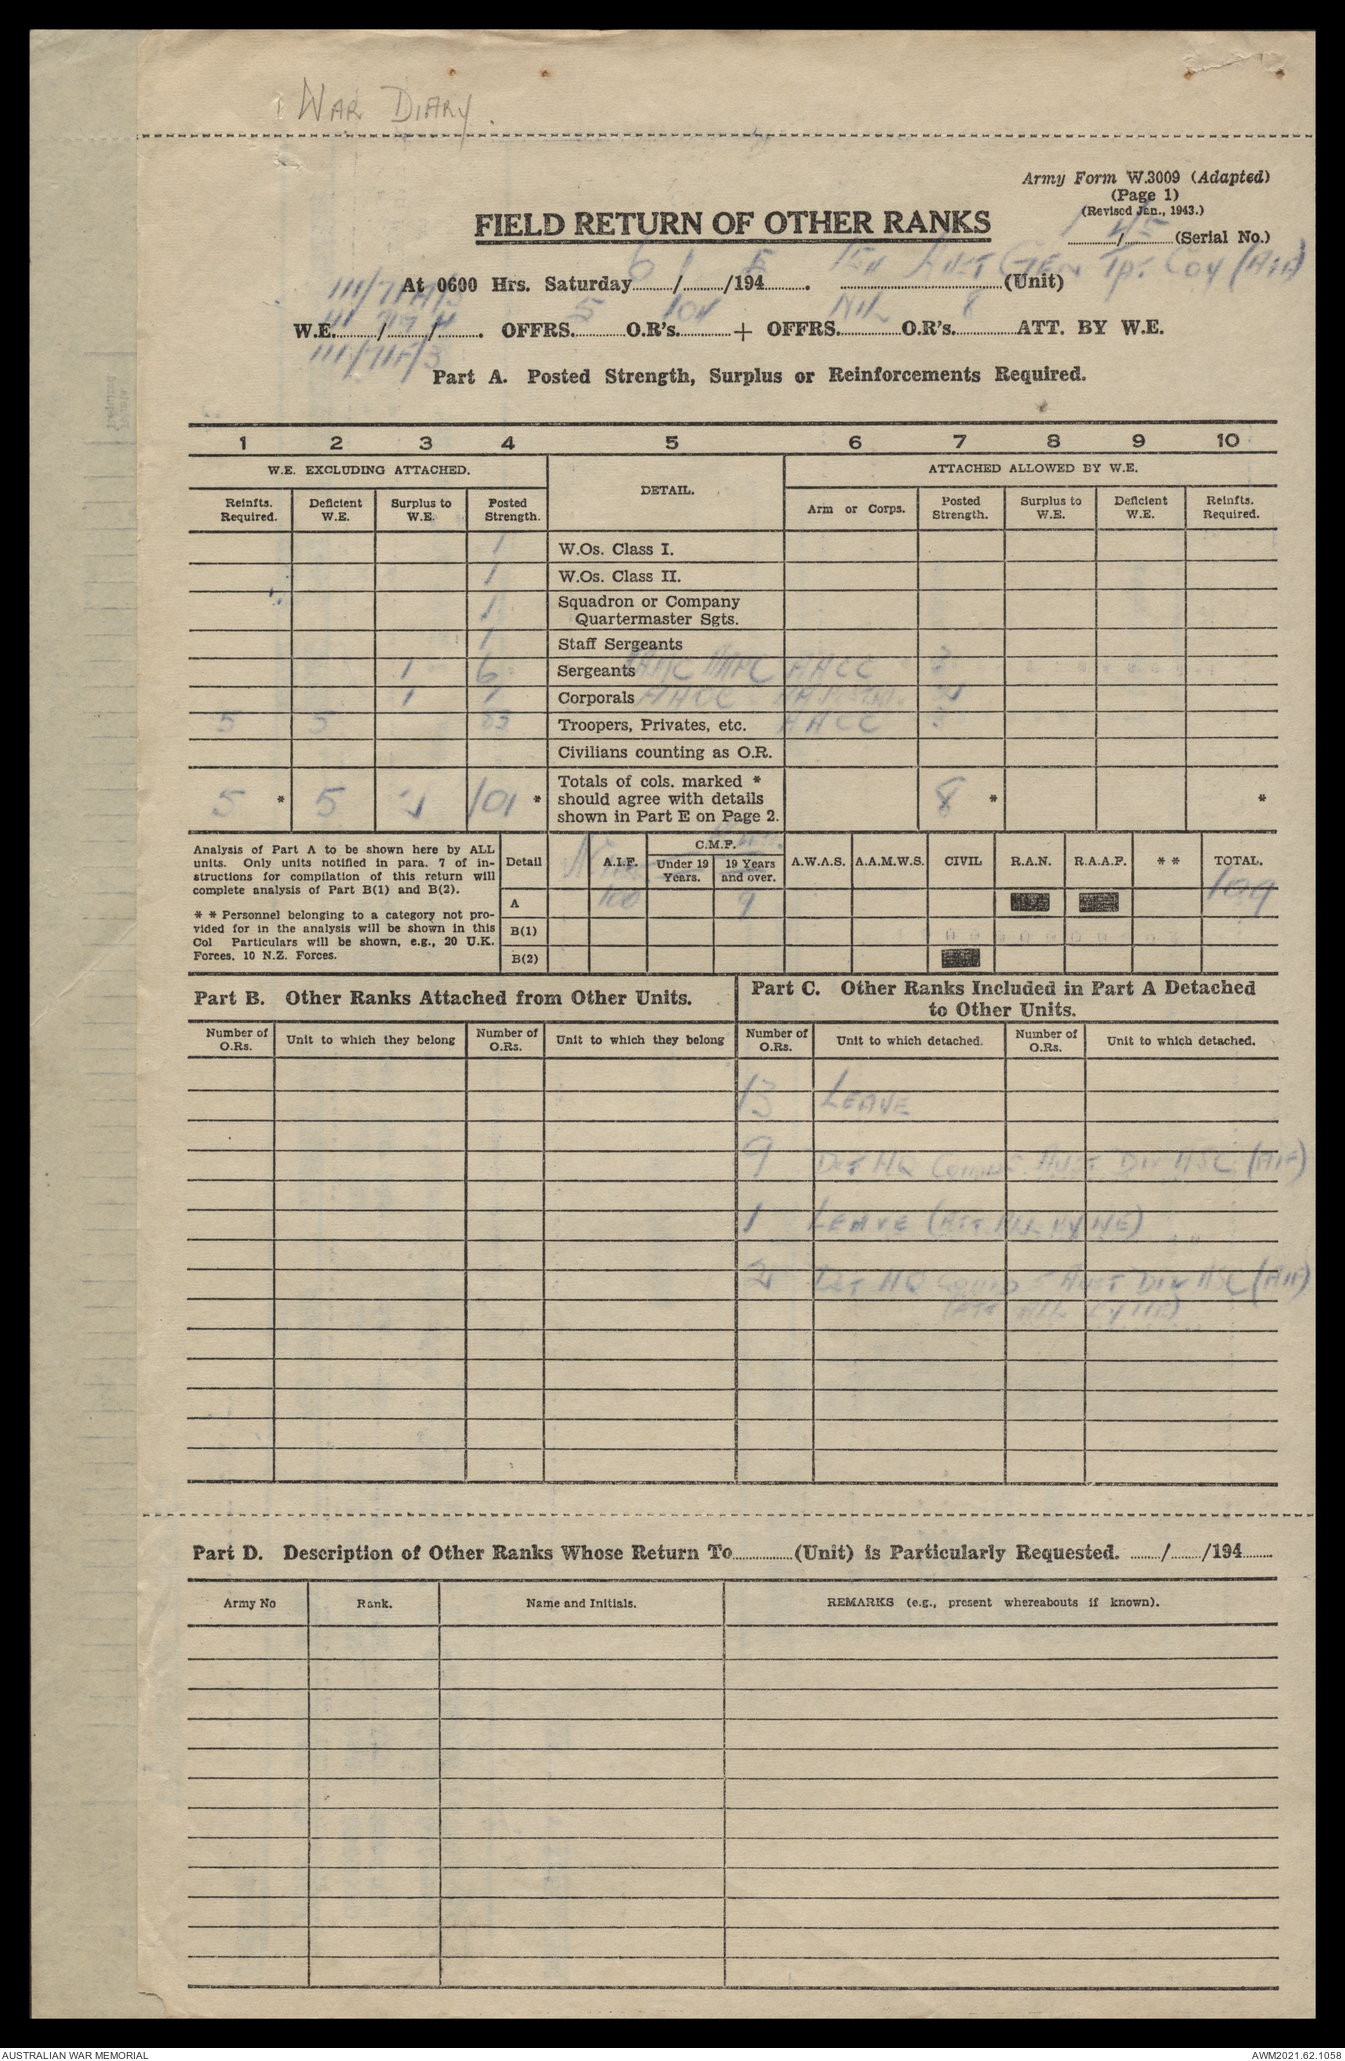 WAR DIARY.
Army Form W.3009 (Adapted)
(Page 1)
(Revised Jan., 1943.)
FIELD RETURN OF OTHER RANKS
1 / 45 (Serial No.)
At 0600 Hrs. Saturday 6/1/194 5. Aust Gen Tpt Coy (AIF) (Unit)
111/71A/3
W.E. / / . OFFRS. 5 O.R's. 104 + OFFRS. NIL O.R's. 8 ATT. BY W.E.
111/71F/3
Part A. Posted Strength, Surplus or Reinforcements Required.
1 2 3 4 5 6 7 8 9 10
W.E. EXCLUDING ATTACHED. DETAIL. ATTACHED ALLOWED BY W.E.
Reinfts. Required. Deficient W.E. Surplus to W.E. Posted Strength. Arm or Corps. Posted Strength. Surplus to W.E. Deficient W.E. Reinfts. Required.
1 W.Os. Class I.
1 W.Os. Class II.
1 Squadron or Company Quartermaster Sgts.
1 Staff Sergeants
1 6 Sergeants AACC 3
1 7 Corporals AACC 2
5 5 83 Troopers, Privates, etc. AACC 3
Civilians counting as O.R.
5 * 5 2 101 * Totals of cols. marked * should agree with details shown in Part E on Page 2. 8 * *
Analysis of Part A to be shown here by ALL
units. Only units notified in para. 7 of in-
structions for compilation of this return will
complete analysis of Part B(1) and B(2).
* * Personnel belonging to a category not pro-
vided for in the analysis will be shown in this
Col Particulars will be shown, e.g., 20 U.K.
Forces, 10 N.Z. Forces.
Detail A.I.F. C.M.F. Under 19 Years. 19 Years and over. A.W.A.S. A.A.M.W.S. CIVIL R.A.N. R.A.A.F. * * TOTAL.
A 100 9 109
B(1)
B(2)
Part B. Other Ranks Attached from Other Units.
Part C. Other Ranks Included in Part A Detached
to Other Units.
Number of O.Rs. Unit to which they belong Number of O.Rs. Unit to which they belong Number of O.Rs. Unit to which detached. Number of O.Rs. Unit to which detached.
13 LEAVE
9 Det HQ Comd 5 Aust Div ASC (AIF)
1 LEAVE (ATT ALL BY WE)
2 Det HQ Comd 5 Aust Div ASC (AIF)
(ATT ALL BY WE)
Part D. Description of Other Ranks Whose Return To (Unit) is Particularly Requested. / /194
Army No Rank. Name and Initials. REMARKS (e.g., present whereabouts if known).
AUSTRALIAN WAR MEMORIAL AWM2021.62.1058